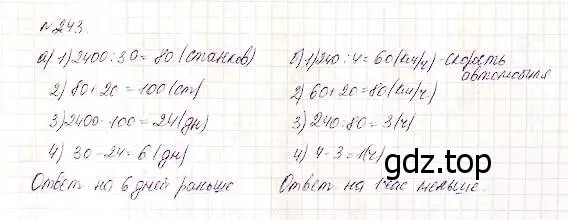 №243.
а) 1) 2400:30=80 (станков)
2) 80+20=100 (ст)
3) 2400:100=24 (дн)
4) 30-24=6 (дн)
Ответ на 6 дней раньше
б) 1) 240:4=60 (км/ч) - скорость
автомобиля
2) 60+20=80 (км/ч)
3) 240:80=3 (ч)
4) 4-3=1 (ч)
Ответ на 1 час меньше.
gdz.top